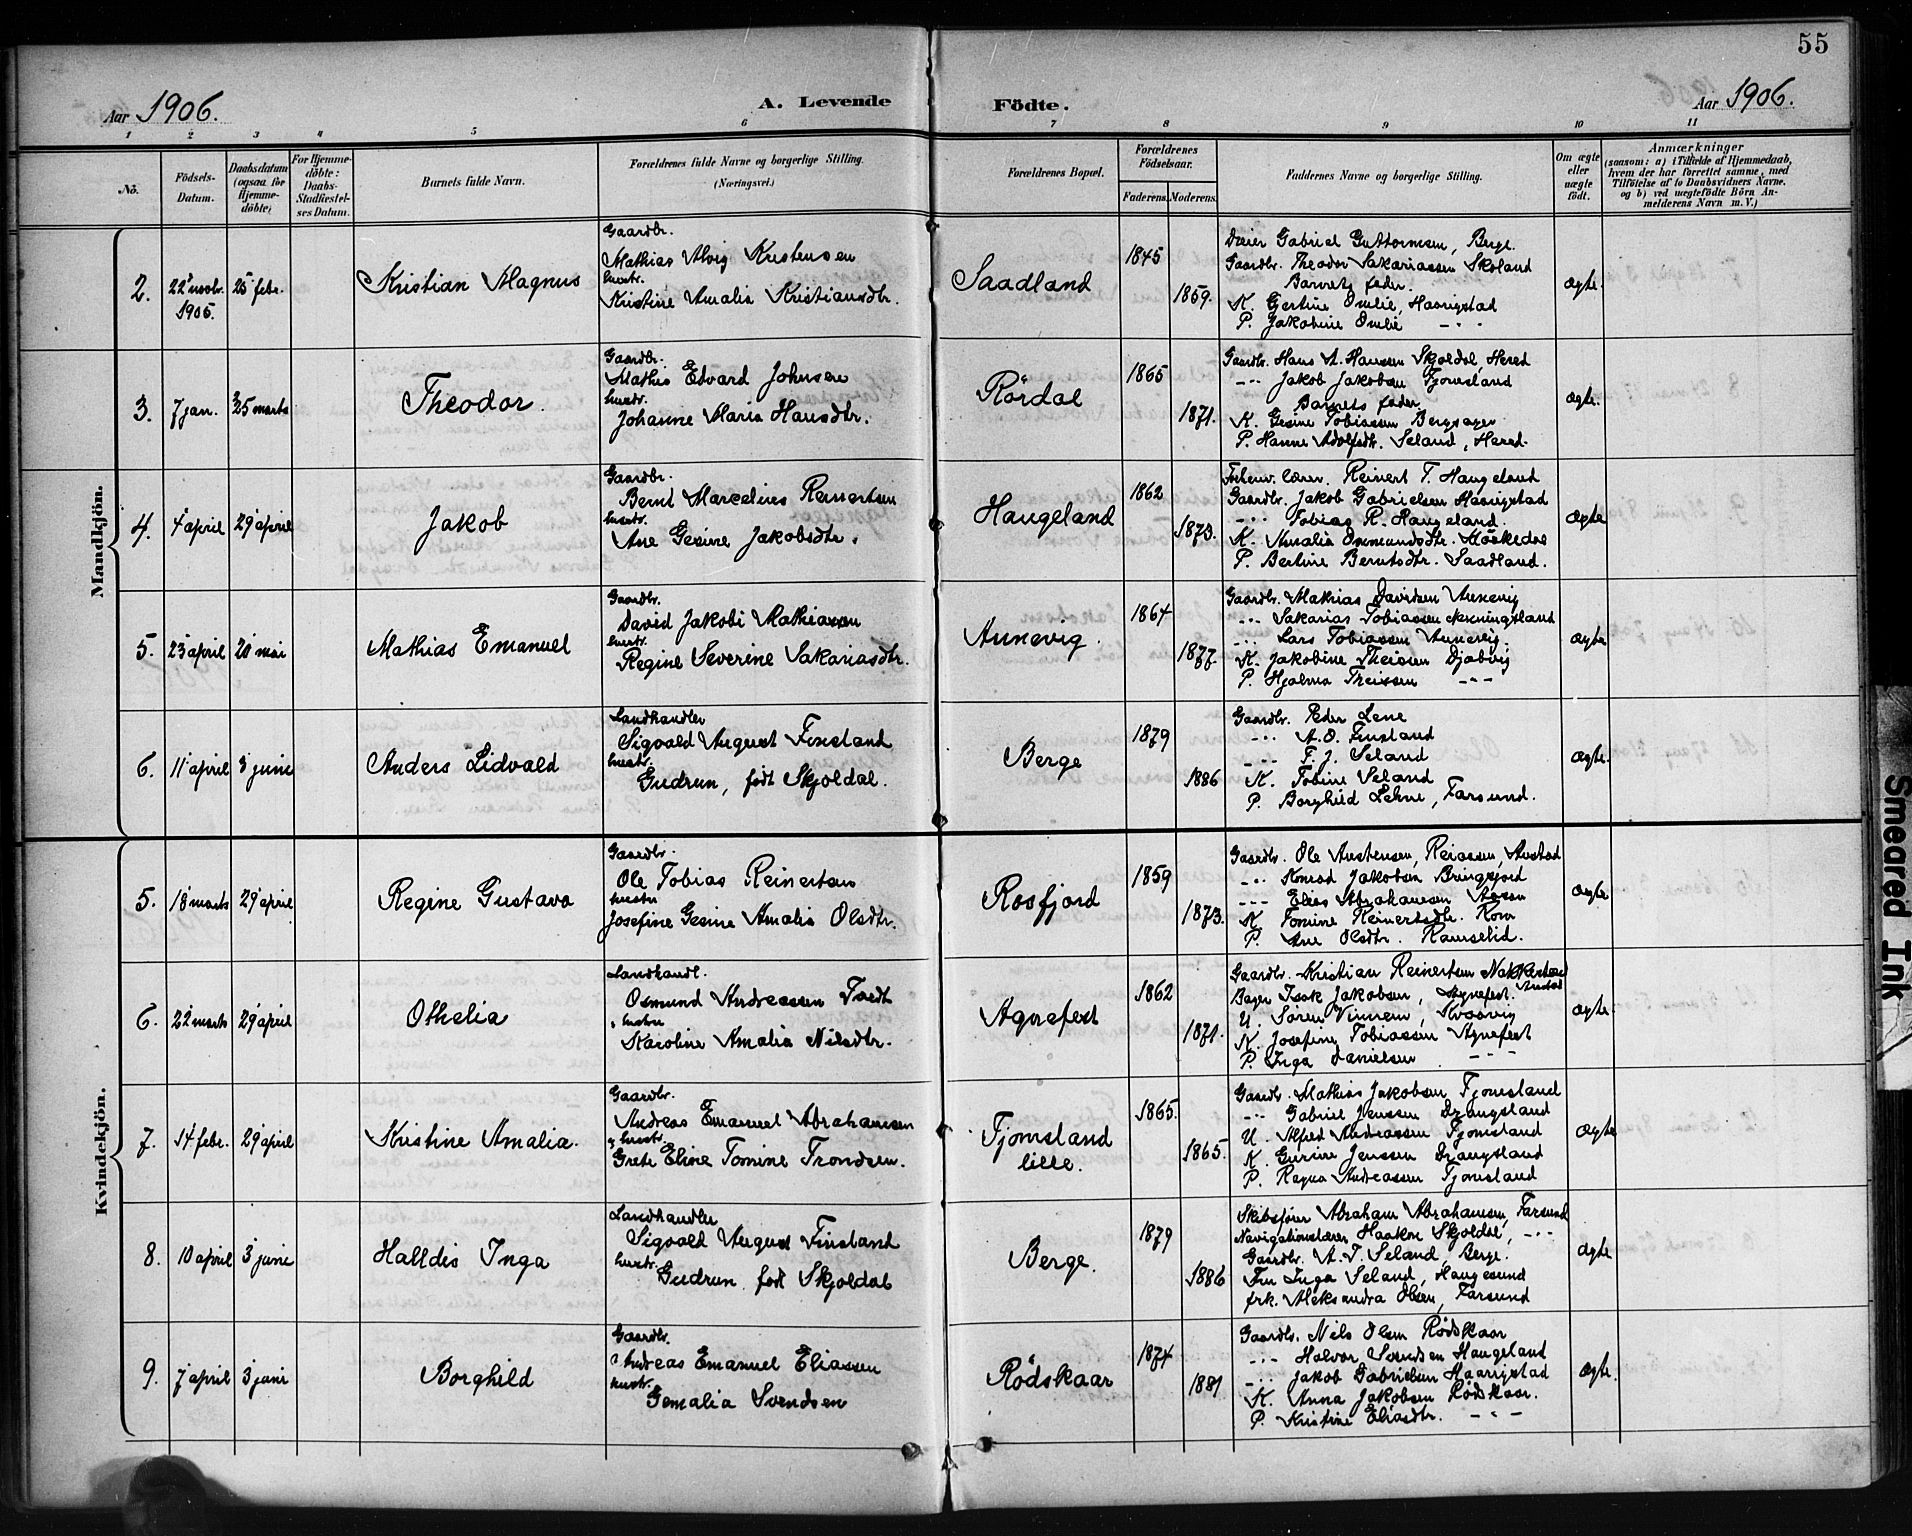 55
Aar 1906.
A. Levende Födte.
Aar 1906.
1 2 3 4 5 6 7 8 9 10 11
No.
Födsels-Datum.
Daabsdatum (ogsaa for Hjemme-döbte)
For Hjemme-döbte: Daabs-Stadfæstel-ses Datum.
Barnets fulde Navn.
Forældrenes fulde Navne og borgerlige Stilling.
(Næringsvei.)
Forældrenes Bopæl.
Forældrenes Födselsaar.
Faderens. Moderens.
Faddernes Navne og borgerlige Stilling.
Om ægte eller uægte født.
Anmærkninger
(saasom: a) i Tilfælde af Hjemmedaab,
hvem der har forrettet samme, med
Tilföielse af to Daabsvidners Navne.
og b) ved uægtefödte Börn An-
melderens Navn m. V.)
Mandkjön.
2. 22 novbr. 1905. 25 febr. Kristian Magnus
Gaardbr.
Mathias Alvig Kristensen
hustr.
Kristine Amalia Kristiansdtr.
Saadland 1845 1859.
Dreier Gabriel Guttormsen, Berge.
Gaardbr. Theodor Sakariassen Skoland
Barnets fader.
K. Gjertine Omlie, Haarigstad
P. Jakobine Omlie -"-
ægte.
3. 7 jan. 25 marts Theodor.
Gaardbr.
Mathis Edvard Johnsen
hustr.
Johanne Maria Hansdtr.
Rördal 1865 1871.
Gaardbr. Hans A. Hansen Skjoldal, Hered
-"- Jakob Jakobsen Fjomsland
Barnets fader
K. Gesine Tobiassen Bergsager
P. Hanne Adolfsdtr. Seland, Hered.
ægte.
4. 4 april 29 april Jakob
Gaardbr.
Bernt Marcelius Reinertsen
hustr.
Ane Gesine Jakobsdtr.
Haugeland 1862 1873.
Forhenv. lærer. Reinert T. Haugeland
Gaardbr. Jakob Gabrielsen Haarigstad
-"- Tobias R. Haugeland.
K. Amalia Osmundsdtr. Möskedal
P. Bertine Berntsdtr. Saadland.
ægte
5. 23 april 20 mai Mathias Emanuel
Gaardbr.
David Jakobi Mathiassen
hustr.
Regine Severine Sakariasdtr.
Aunevig. 1864 1877
Gaardbr. Mathias Davidsen Aunevig
-"- Sakarias Tobiassen
-"- Lars Tobiassen Aunevig.
K. Jakobine Theisen Djubvig
P. Hjalma Theissen -"-
ægte
6. 11 april 3 june Anders Lidvald
Landhandler
Sigvald August Finsland
hustr.
Gudrun, født Skjoldal.
Berge 1879 1886
Gaardbr. Peder Lene
-"- A. O. Finsland
-"- F. J. Seland
K. Tobine Seland
P. Borghild Lehne, Farsund.
ægte.
Kvindekjön.
5. 18 marts 29 april Regine Gustava
Gaardbr.
Ole Tobias Reinertsen
hustru
Josefine Gesine Amalia Olsdtr.
Rosfjord 1859 1873.
Gaardbr. Ole Austensen, Reiassen, Austad
-"- Konrad Jakobsen Bringsjord
-"- Elias Abrahamsen
K. Tomine Reinertsdtr. Rom
P. Ane Olsdtr. Ramselid.
ægte
6. 22 marts 29 april Othelia
Landhandl.
Osmund Andreassen Tvedt
hustru
Karoline Amalia Nilsdtr.
Agnefest 1862 1871.
Gaardbr. Kristian Reinertsen Nakkestad Austad
Bager Isak Jakobsen, Agnefest.
U. Søren Vinnem, Svaavig
K. Josefine Tobiassen Agnefest
P. Inga Danielsen -"-
ægte.
7. 14 febr. 29 april Kristine Amalia.
Gaardbr.
Andreas Emanuel Abrahamsen
hustr.
Grete Eline Tomine Trondsen.
Fjomsland lille. 1865. 1865.
Gaardbr. Mathias Jakobsen Fjomsland
-"- Gabriel Jenssen Drangsland
U. Alfred Andreassen Fjomsland
K. Gurine Jenssen Drangsland
P. Ragna Andreassen Fjomsland
ægte
8. 10 april 3 june Halldis Inga
Landhandler
Sigvald August Finsland
hustr.
Gudrun født Skjoldal
Berge. 1879 1886
Skibsfører Abraham Abrahamsen, Farsund
Navigationslærer Haakon Skjoldal, -"-
Gaardbr. A. T. Seland, Berge.
Fru Inga Seland, Haugesund
frk. Aleksandra Olsen, Farsund
ægte.
9. 7 april 3 juni Borghild
Gaardbr.
Andreas Emanuel Eliassen
hustr.
Gemalia Svendsen
Rödskaar 1874 1881
Gaardbr. Nils Olsen Rødskaar
-"- Halvor Svendsen Haugeland
-"- Jakob Gabrielsen Haarigstad
K. Anna Jakobsen Rødskaar.
P. Kristine Eliasdtr. -"-
ægte.
Smeared Ink